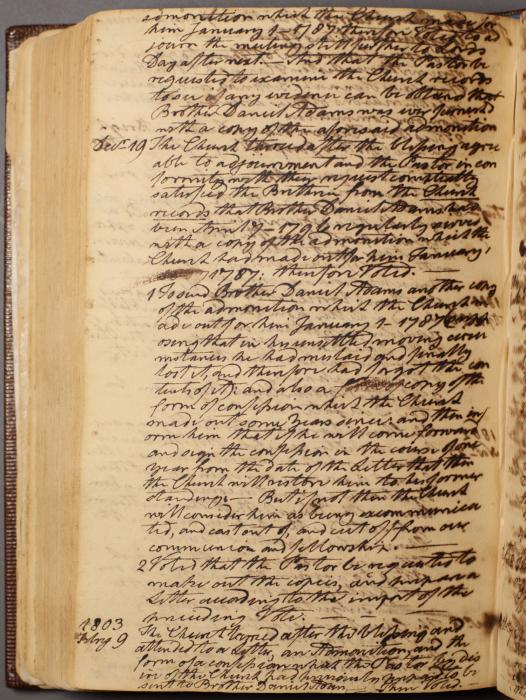 admonition which the Church made for
him January 1 – 1787 therefore Voted to ad
journ the meeting still further to Lords
Day after next. – And that the Pastor be
requested to examine the Church records
to see if any evidence can be obtained that
Brother Daniel Adams was ever furnished
with a copy of the aforesaid admonition
Decr 19 The Church tarried after the blessing agre
able to adjournment and the Pastor in con
formity with their request completely
satisfied the Brethren from the Church
records that Brother Daniel Adams had
been April 17 – 1791 regularly served
with a copy of the admonition which the
Church had made out for him January 1
1787: therefore Voted. –
1 To send Brother Daniel Adams another copy
of the admonition which the Church m
ade out for him January 1 – 1787
osing that in his unsettled moving circu
mstances he had mislaid and finally
lost it, and therefore had forgot the con
tents of it; and also a copy of the
form of confession which the Church
made out some years since: and then inf
orm him that if he will come forward
and sign the confession in the course of one
year from the date of the Letter that then
the Church will restore him to his former
standing – But if not then the Church
will consider him as being excommunica
ted, and cast out of, and cut off from our
communion and fellowship. –
2 Voted that the Pastor be requested to
make out the copies, and prepare a
Letter according to the import of the
preceding Vote. –
1803
9 The Church tarried after the blessing and
attended to a Letter, an Admonition, and the
form of a confession which the Pastor by des
ire of the Church had previously prepared to be
sent to Brother Daniel Adams –